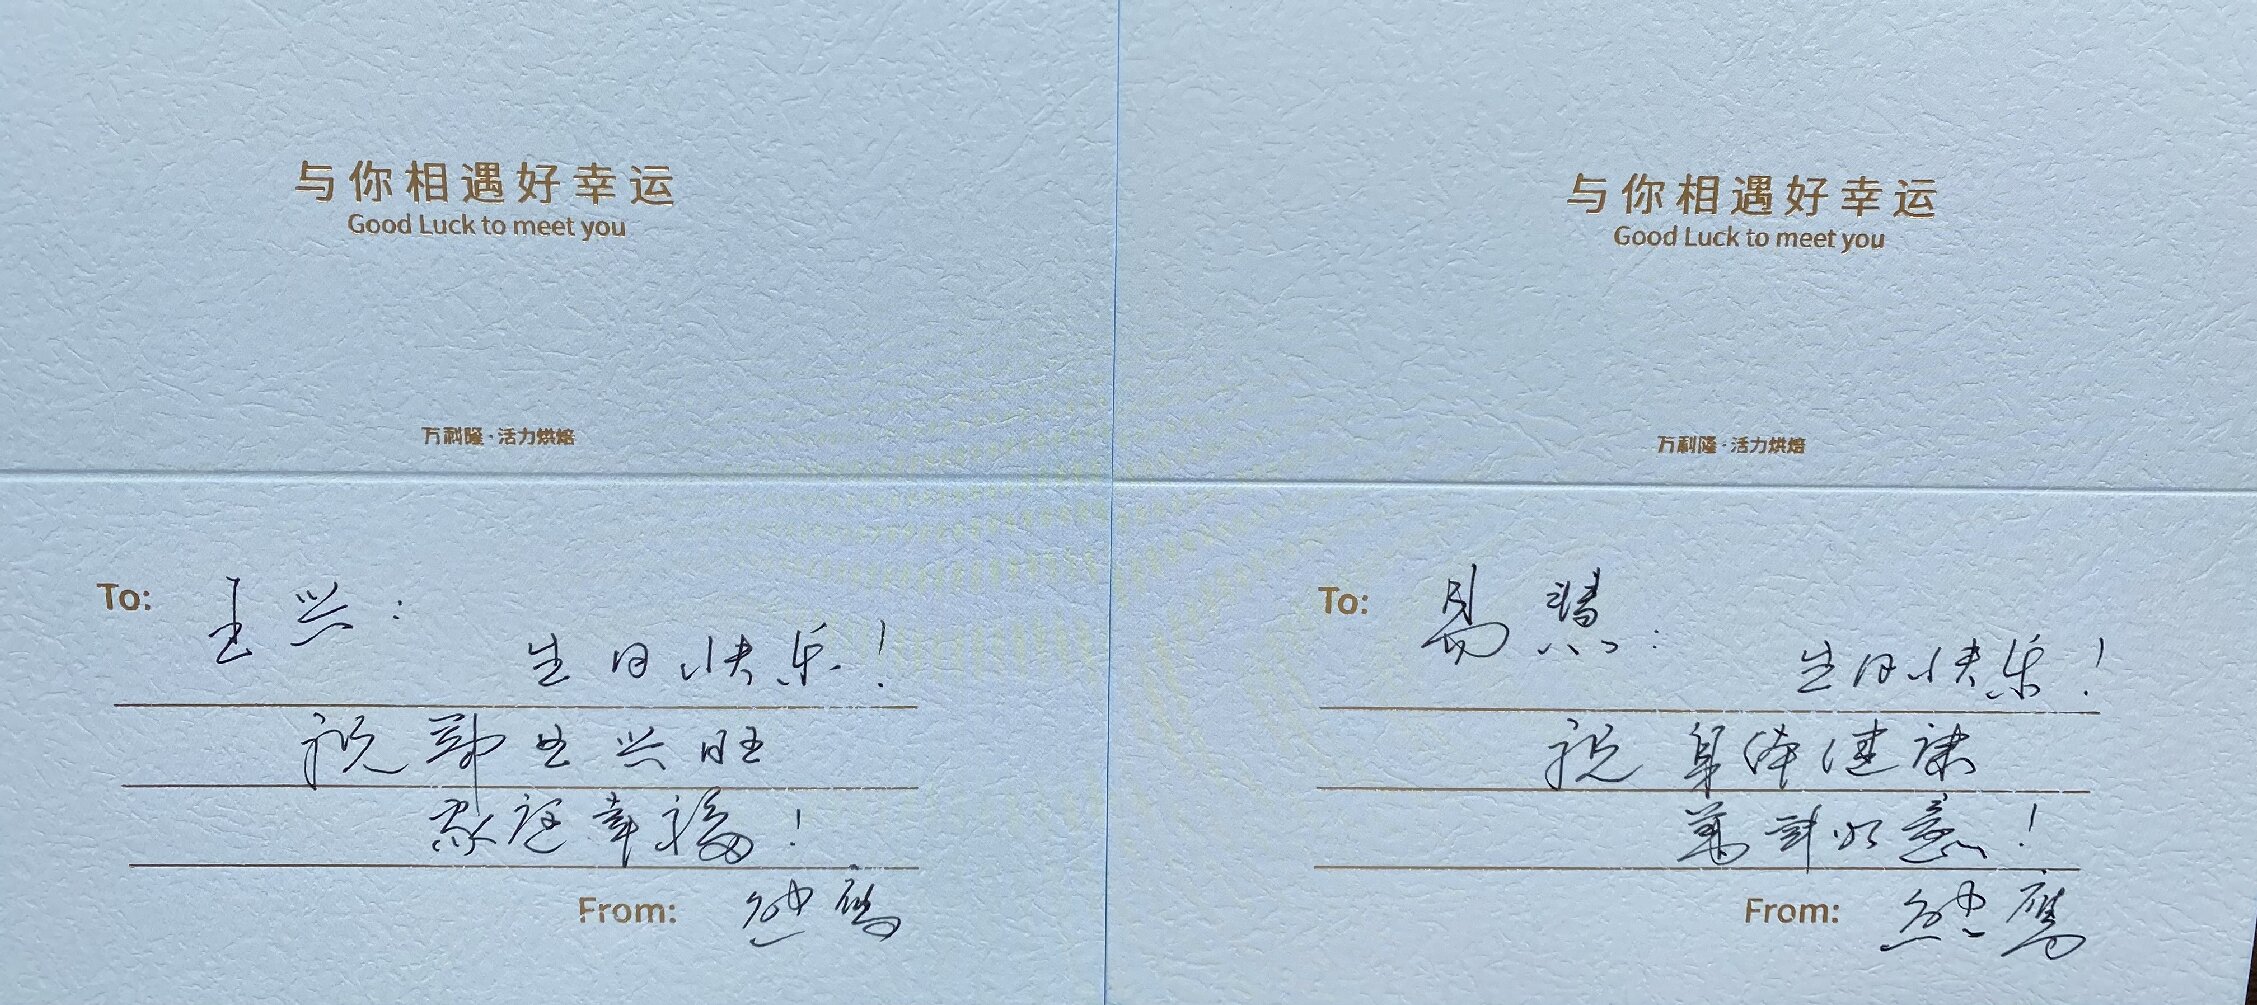 与你相遇好幸运
Good Luck to meet you
万利隆·活力烘焙
To: 王兴:
生日快乐!
祝事业兴旺
家庭幸福!
From:
与你相遇好幸运
Good Luck to meet you
万利隆·活力烘焙
To: 易慧:
生日快乐!
祝身体健康
万事如意!
From: